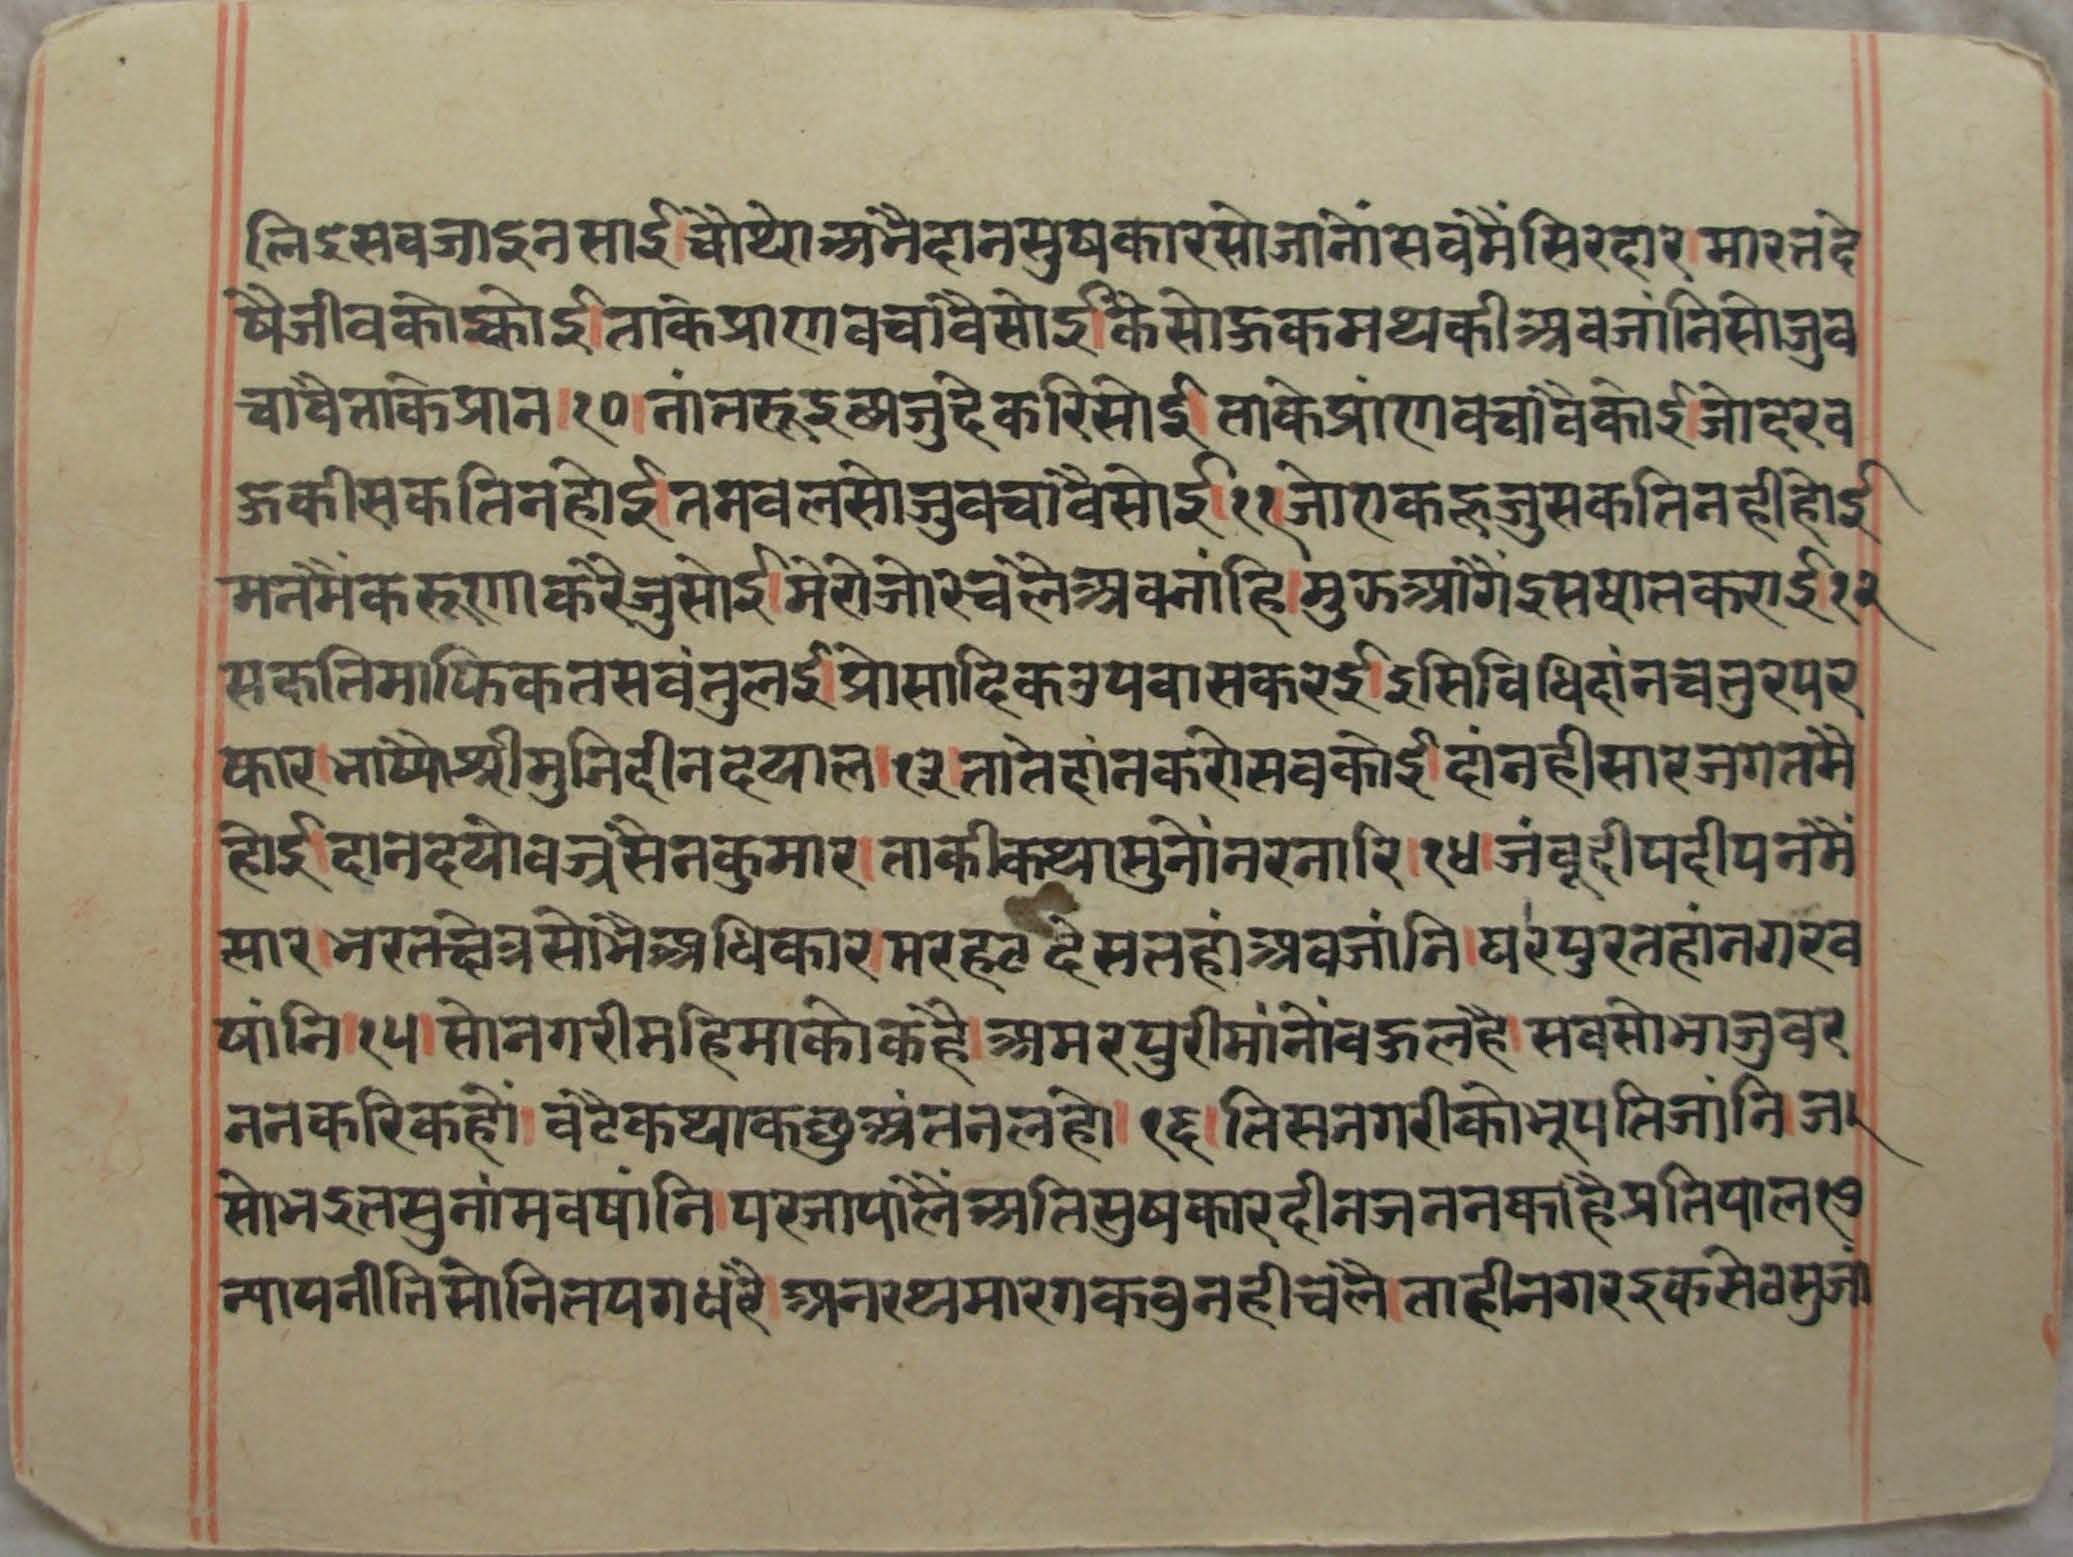 लिइसवजाइनसाई।चौथोअभैदानसुषकारसोजानोंसवमैंसिरदार।मारतदे
षैजीवकोइकोई।ताकेप्राणवचांवैसोई।कैसोऊकमथकीअवजांनिसोजुव
चावैताकेप्रान।१०।नांनरूइळाजुदेकरिसोई।ताकेप्रांणवचांवैकोई।जोदरव
ऊकीसकतिनहोई।तनवलसोजुवचांवैसोई।११।जोएकहूजुसकतिनहीहोई
मनमैंकरूणाकरैजुसोई।मेरोजोरचलैअवनांहि।मुऊआंगैइसघातकराई।१२
सकतिमाफिकतसवंतुलई।प्रोसादिकउपवासकरई।इसिविधिदांनचतुरपर
कार।भाष्योश्रीमुनिदीनदयाल।१३।तातेदांनकरोसवकोई।दांनहीसारजगतमै
होई।दानदयोवज्रसेनकुमार।ताकीकथासुनोंनरनारि।१४।जंवूदीपदीपनमैं
सार।भरतक्षेत्रसोभैअधिकार।मरहटदेसलहांअवजांनि।घरपुरतहांनगरव
षांनि।१५।सोनगरीमहिमाकोकहै।अमरपुरीमांनोंवऊलहै।सवसोभाजुवर
ननकरिकहों।वंटैकथाकछुअंतनलहो।१६।तिसनगरीकोभूपतिजांनि।जर
सोभइतसुनांमवषांनि।परजापालैंअतिसुषकारदीनजननकोहैप्रतिपाल१७
न्यायनीतिसोनितपगधरै।अनरथमारगकवुनहीचलै।ताहीनगरइकसेठसुजां